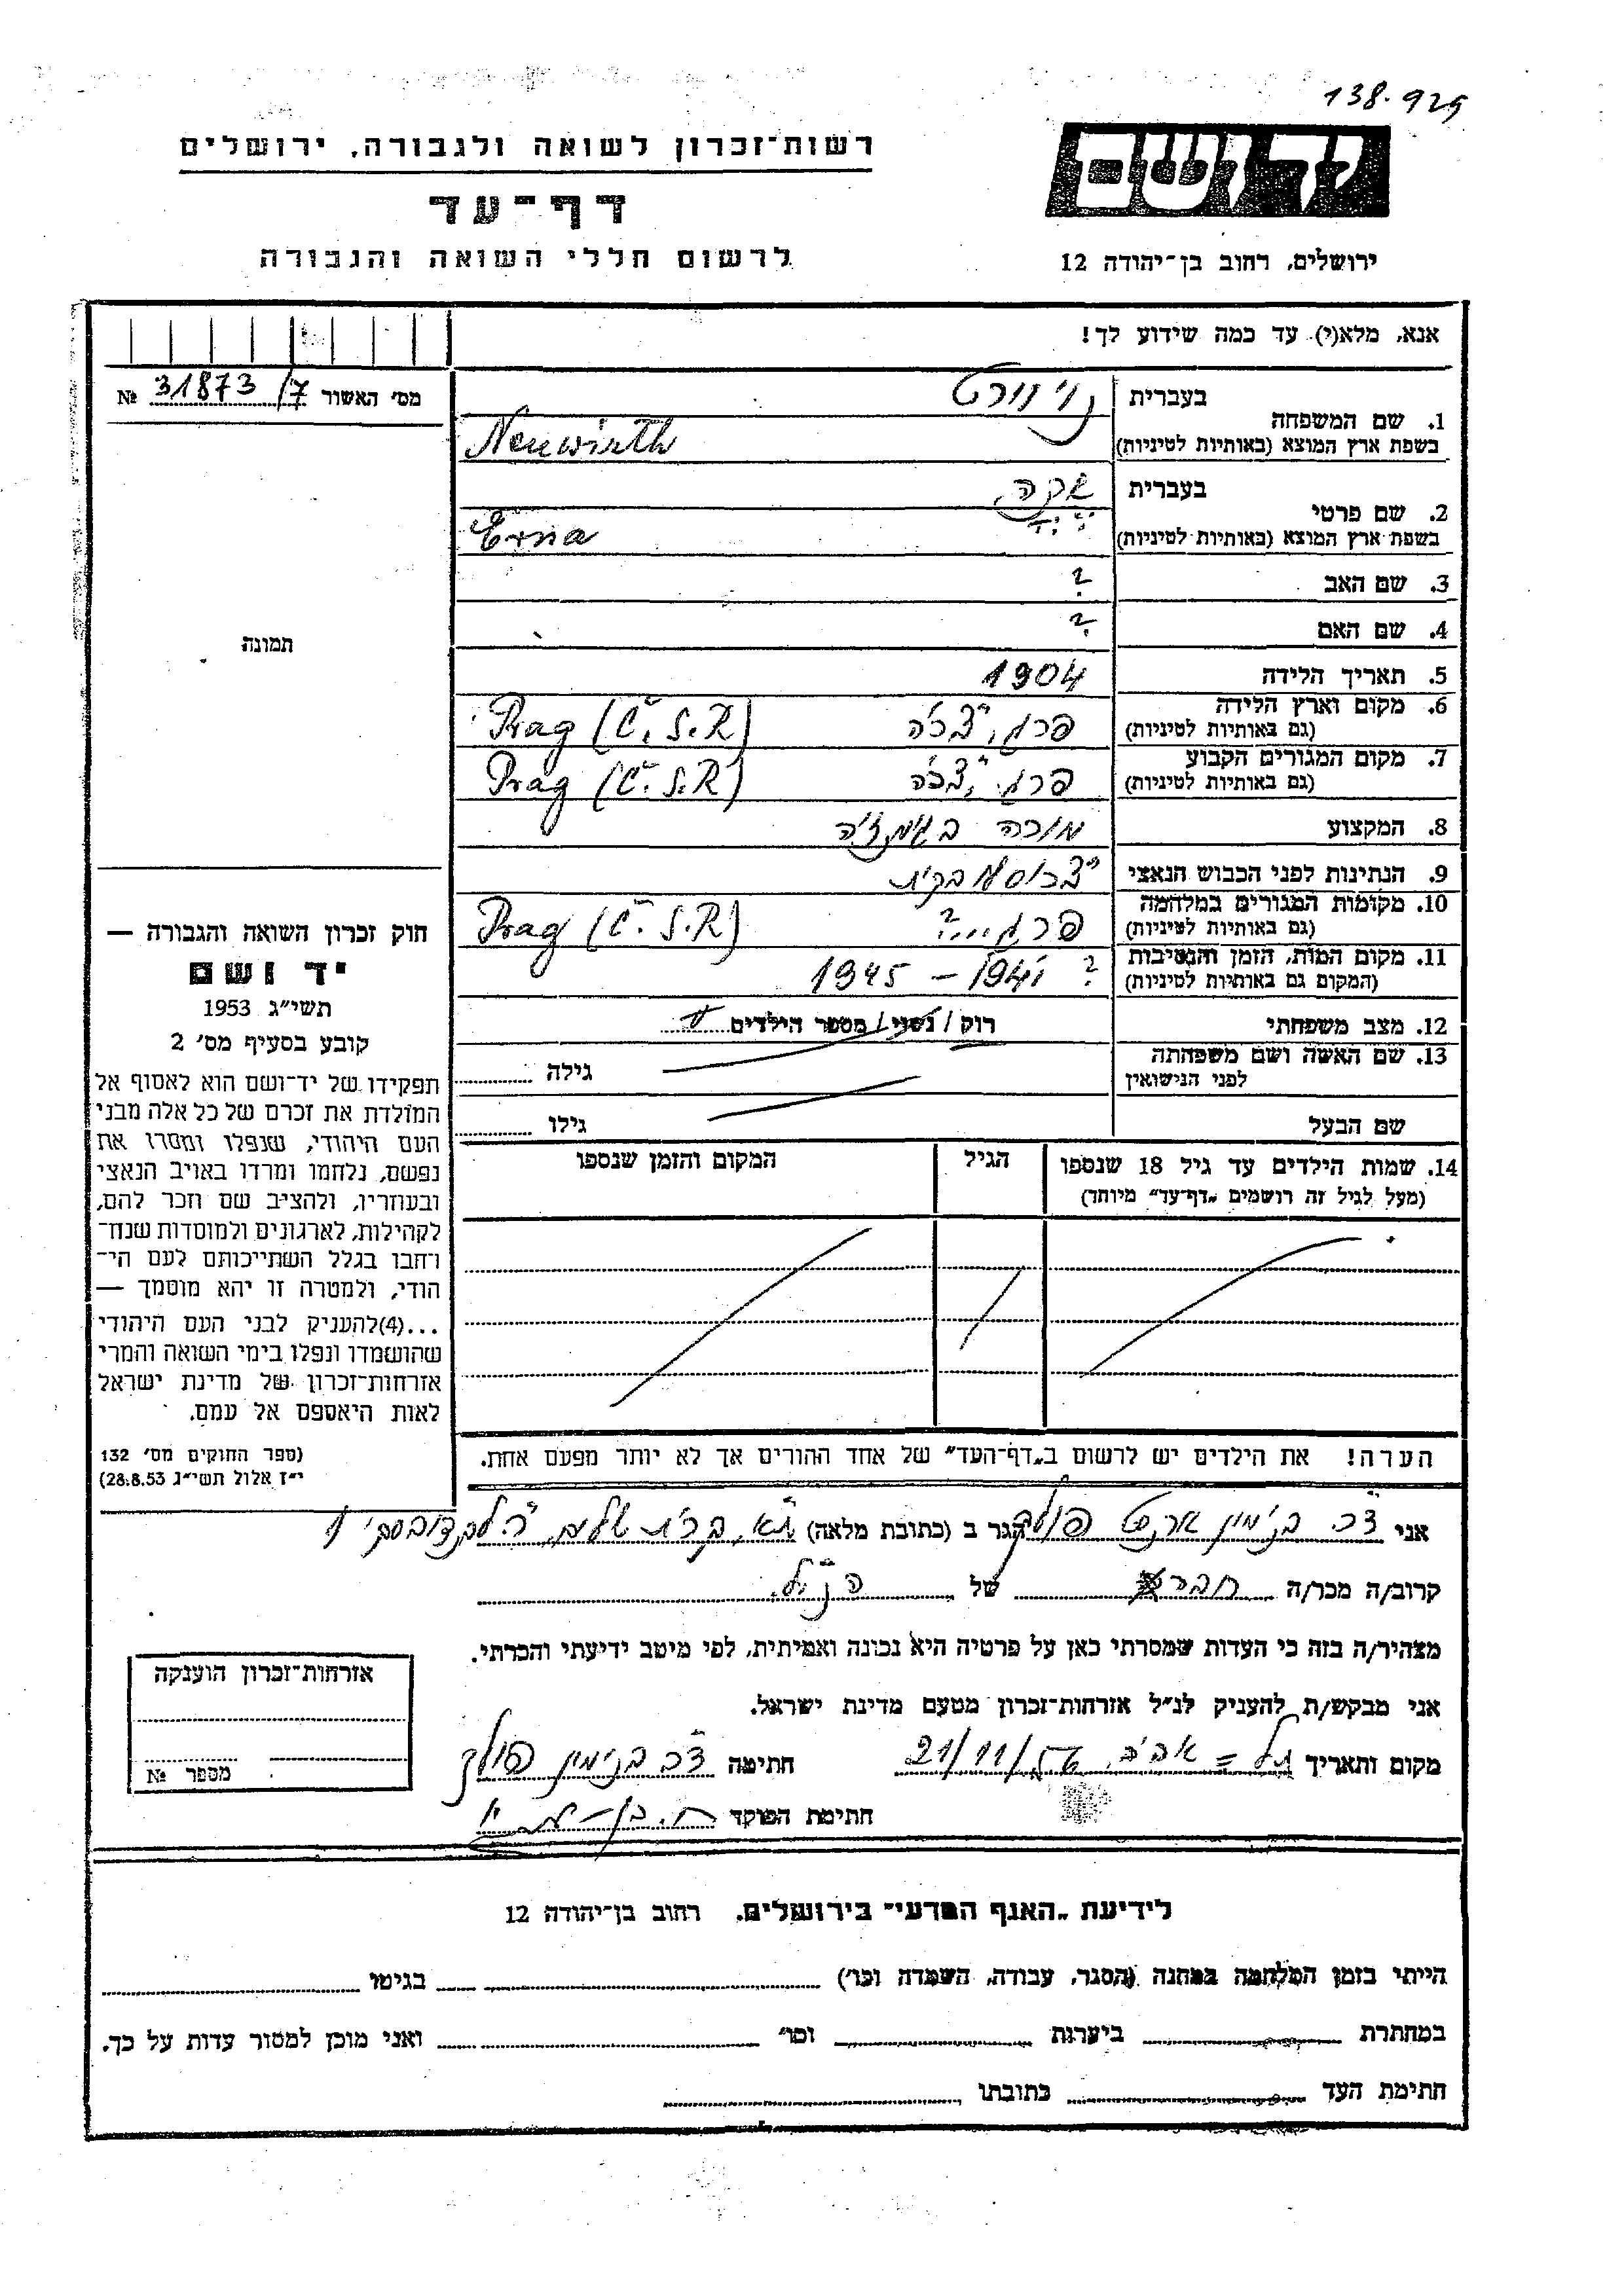 138-925
יד ושם
ירושלים, רחוב בן־יהודה 12
רשות־זכרון לשואה ולגבורה, ירושלים
דף־עד
לרשום חללי השואה והגבורה
אנא, מלא(י) עד כמה שידוע לך!
מס׳ האשור 31873/7 №
תמונה
חוק זכרון השואה והגבורה —
יד ושם
תשי״ג 1953
קובע בסעיף מס׳ 2
תפקידו של יד־ושם הוא לאסוף אל
המולדת את זכרם של כל אלה מבני
העם היהודי, שנפלו ומסרו את
נפשם, נלחמו ומרדו באויב הנאצי
ובעוזריו, ולהציב שם וזכר להם,
לקהילות, לארגונים ולמוסדות שנח־
רחבו בגלל השתייכותם לעם הי־
הודי, ולמטרה זו יהא מוסמך —
...(4)להעניק לבני העם היהודי
שהושמדו ונפלו בימי השואה והמרי
אזרחות־זכרון של מדינת ישראל
לאות היאספם אל עמם.
(ספר החוקים מס׳ 132
י״ז אלול תשי״ג 28.8.53)
1. שם המשפחה
בעברית נוי וירט
בשפת ארץ המוצא (באותיות לטיניות) Neuwirth
2. שם פרטי
בעברית
בשפת ארץ המוצא (באותיות לטיניות) Erna
3. שם האב ?
4. שם האם ?
5. תאריך הלידה 1904
6. מקום וארץ הלידה פרג, צ׳כיה Prag (Č.S.R)
(גם באותיות לטיניות)
7. מקום המגורים הקבוע פרג, צ׳כיה Prag (Č.S.R)
(גם באותיות לטיניות)
8. המקצוע מורה בגמנזיה
9. הנתינות לפני הכבוש הנאצי צ׳כוסלובקית
10. מקומות המגורים במלחמה פרג...? Prag (Č.S.R)
(גם באותיות לטיניות)
11. מקום המות, הזמן והנסיבות ? 1941 – 1945
(המקום גם באותיות לטיניות)
12. מצב משפחתי רוק / נשוי / מספר הילדים
13. שם האשה ושם משפחתה
לפני הנישואין גילה
שם הבעל גילו
14. שמות הילדים עד גיל 18 שנספו הגיל המקום והזמן שנספו
(מעל לגיל זה רושמים „דף־עד״ מיוחד)
הערה! את הילדים יש לרשום ב„דף־העד״ של אחד ההורים אך לא יותר מפעם אחת.
אני ד״ר בנימין ארנסט פולק הגר ב (כתובת מלאה) ת״א,
קרוב/ה מכר/ה חבר של הנ״ל
מצהיר/ה בזה כי העדות שמסרתי כאן על פרטיה היא נכונה ואמיתית, לפי מיטב ידיעתי והכרתי.
אני מבקש/ת להעניק לנ״ל אזרחות־זכרון מטעם מדינת ישראל.
מקום ותאריך תל־אביב 21/11/ חתימה ד״ר בנימין פולק
חתימת הפוקד
אזרחות־זכרון הוענקה
מספר №
לידיעת „האגף המדעי״ בירושלים, רחוב בן־יהודה 12
הייתי בזמן המלחמה במחנה (הסגר, עבודה, השמדה וכו׳) בגיטו
במחתרת ביערות וכו׳ ואני מוכן למסור עדות על כך.
חתימת העד כתובתו